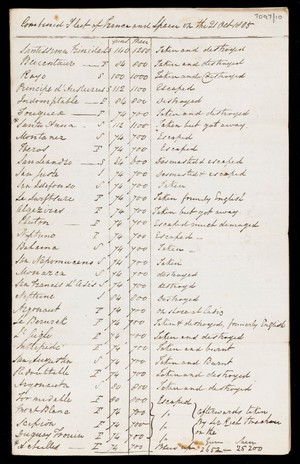 7097/10
Combined Fleet of France and Spain on the 21 Oct 1805
Guns Men
Santissima Trinidad S 140 1200 Taken and destroyed
Bucentaure F 84 800 Taken and destroyed
Rayo S 100 1000 Taken and destroyed
Principe d'Austurias S 112 1100 Escaped
Indomptable F 84 800 Destroyed
Fougueux F 74 700 Taken and destroyed
Santa Anna S 112 1100 Taken but got away
Montanez S 74 700 Escaped
Heros F 74 700 Escaped
San Leandro S 64 600 Desmasted & escaped
San Justo S 74 700 Desmasted & escaped
San Ildefonso S 74 700 Taken
Le Swiftsure F 74 700 Taken formerly English
Algezires F 74 700 Taken but got away
Pluton F 74 700 Escaped much damaged
Neptuno S 74 700 Escaped
Bahama S 74 700 Taken
San Nepomuceno S 74 700 Taken
Monarca S 74 700 destroyed
San Francis d'Asis S 74 700 destroyed
Neptune 84 800
Argonaut F 74 700 on shore at Cadiz
Le Berwick F 74 700 Taken & destroyed, formerly English
L'Aigle F 74 700 Taken and destroyed
Intrepide F 74 700 Taken and burnt
San Augustin S 74 700 Taken and Burnt
Redoubtable F 74 700 Taken and destroyed
Argonauta S 80 800 Taken and destroyed
Formidable F 80 800 Escaped
Mont Blanc F 74 700 afterwards taken
Scipion F 74 700 by Sir Rich Strachan
Duguay Trouin F 74 700 on the
Guns Men
2652 25200